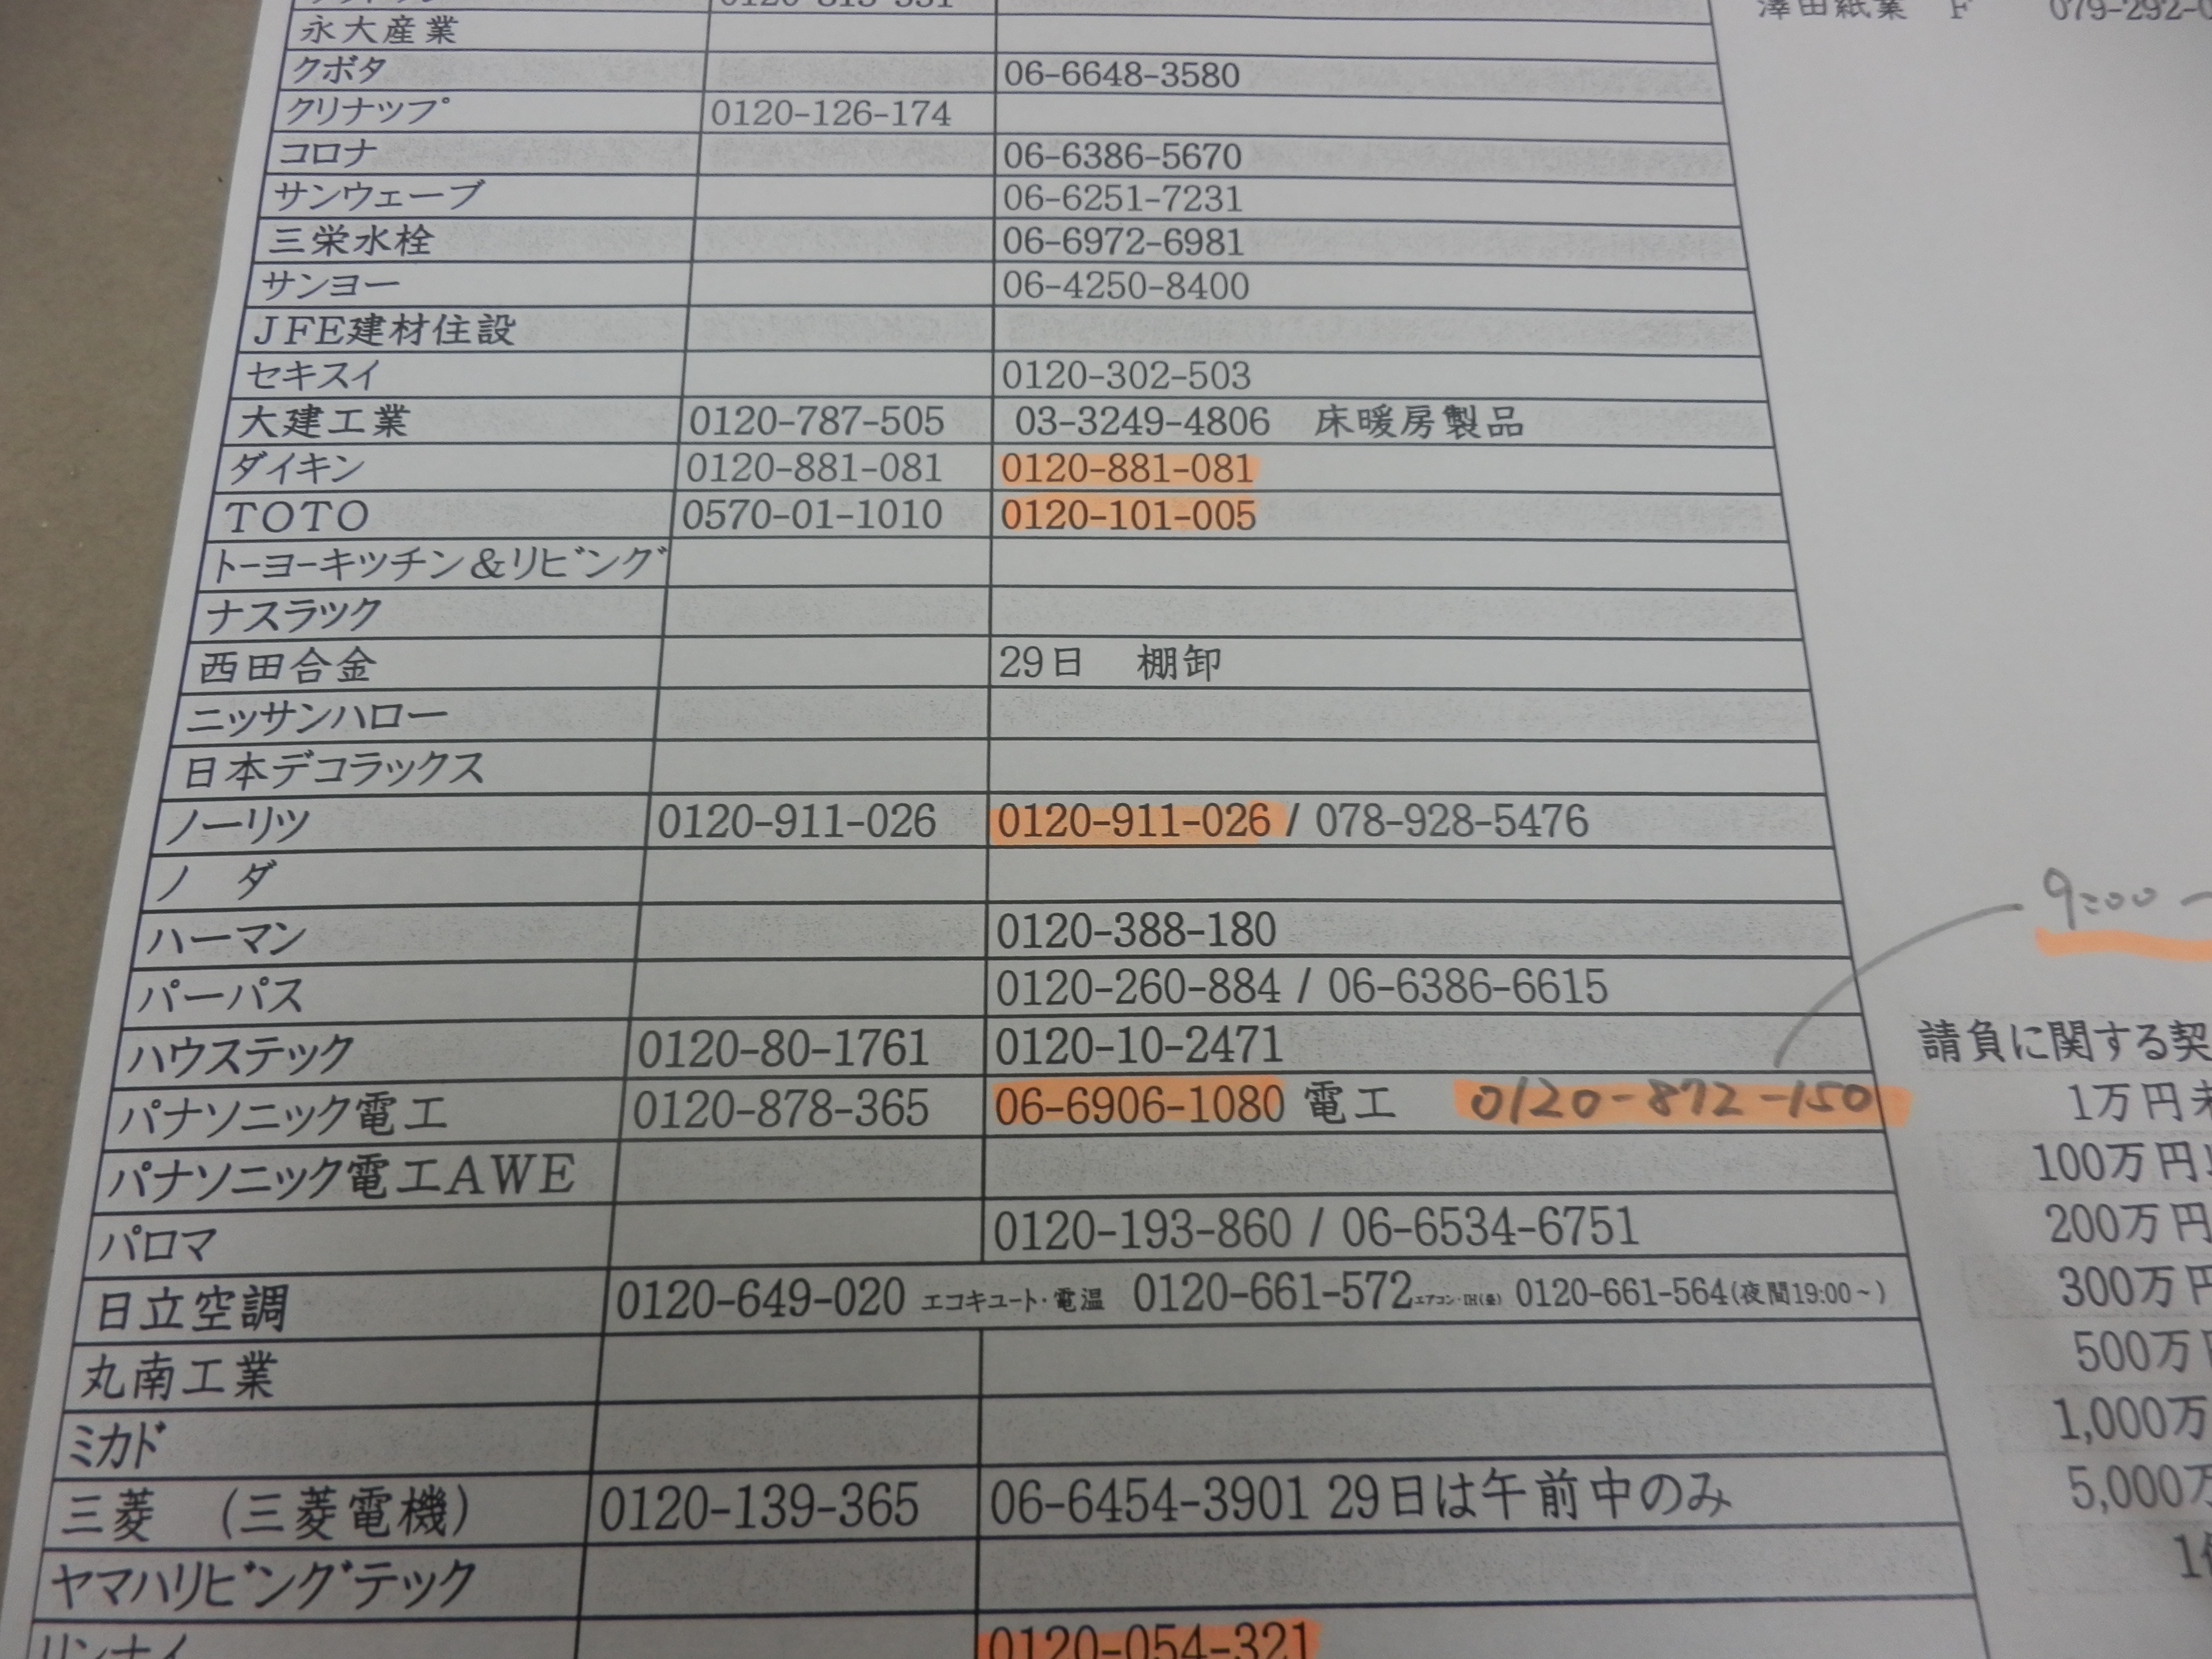 澤田紙業 F 079-292-0
永大産業
クボタ 06-6648-3580
クリナップ 0120-126-174
コロナ 06-6386-5670
サンウェーブ 06-6251-7231
三栄水栓 06-6972-6981
サンヨー 06-4250-8400
JFE建材住設
セキスイ 0120-302-503
大建工業 0120-787-505 03-3249-4806 床暖房製品
ダイキン 0120-881-081 0120-881-081
TOTO 0570-01-1010 0120-101-005
トーヨーキッチン&リビング
ナスラック
西田合金 29日 棚卸
ニッサンハロー
日本デコラックス
ノーリツ 0120-911-026 0120-911-026 / 078-928-5476
ノ ダ
9:00 -
ハーマン 0120-388-180
パーパス 0120-260-884 / 06-6386-6615
ハウステック 0120-80-1761 0120-10-2471
請負に関する契
パナソニック電工 0120-878-365 06-6906-1080 電工 0120-872-150
1万円
パナソニック電工AWE
100万円
パロマ 0120-193-860 / 06-6534-6751
200万円
日立空調 0120-649-020 エコキュート・電温 0120-661-572 0120-661-564(夜間19:00~)
300万円
丸南工業
500万
ミカド
1,000万
三菱 (三菱電機) 0120-139-365 06-6454-3901 29日は午前中のみ
5,000万
ヤマハリビングテック
リンナイ 0120-054-321